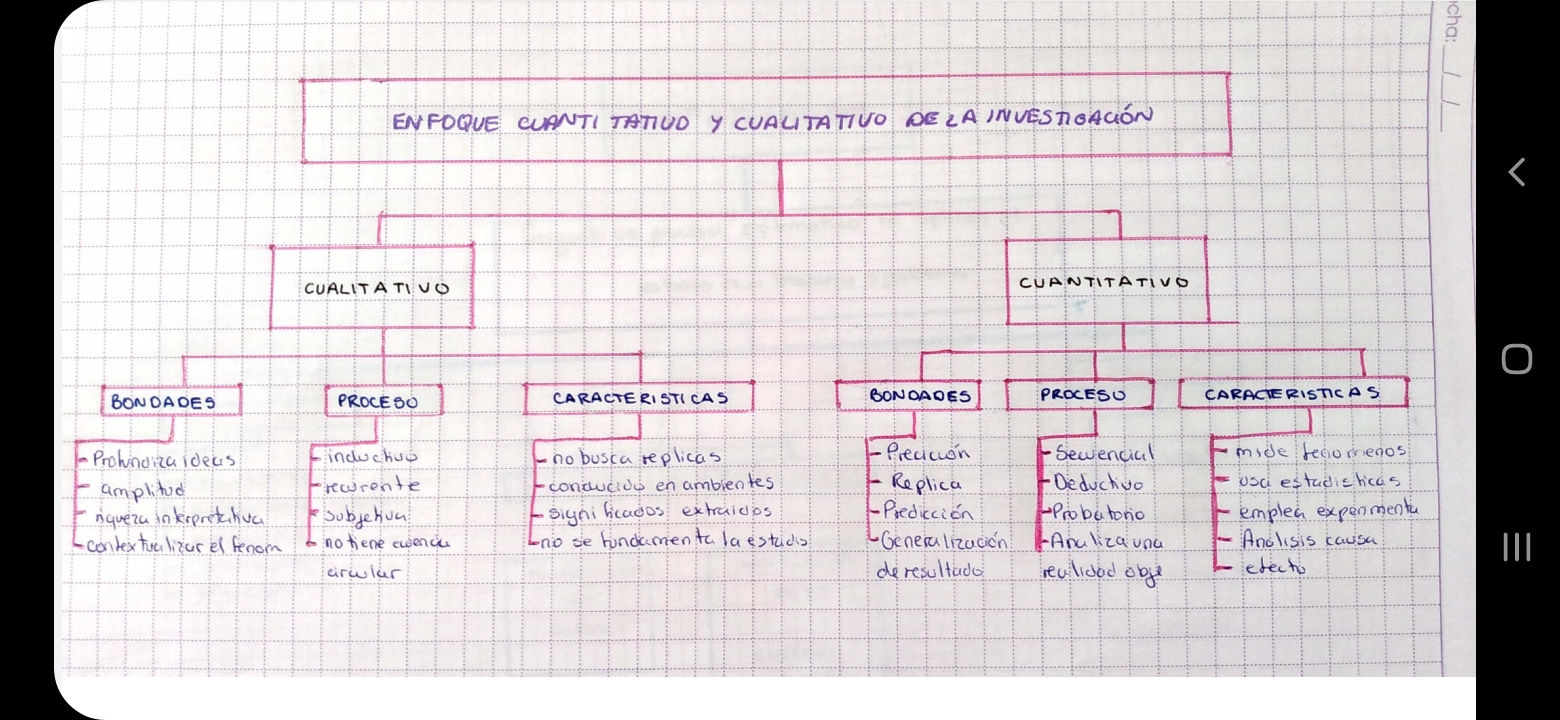 cha: / /
ENFOQUE CUANTITATIVO Y CUALITATIVO DE LA INVESTIGACIÓN
CUALITATIVO
BONDADES
Profundiza ideas
amplitud
riqueza interpretativa
contextualizar el fenom
PROCESO
inductivo
recurrente
subjetiva
no tiene
circular
CARACTERISTICAS
no busca replicas
conducido en ambientes
significados extraidos
no se fundamenta la estadis
CUANTITATIVO
BONDADES
Precición
Replica
Predicción
Generalización
de resultado
PROCESO
Secuencial
Deductivo
Probatorio
Analiza una
realidad obje
CARACTERISTICAS
mide fenomenos
usa estadisticas
emplea experimenta
Análisis causa
efecto